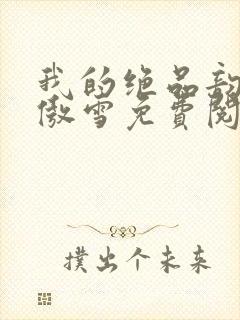 我的绝品
傲雪免費閱
撲出个未来